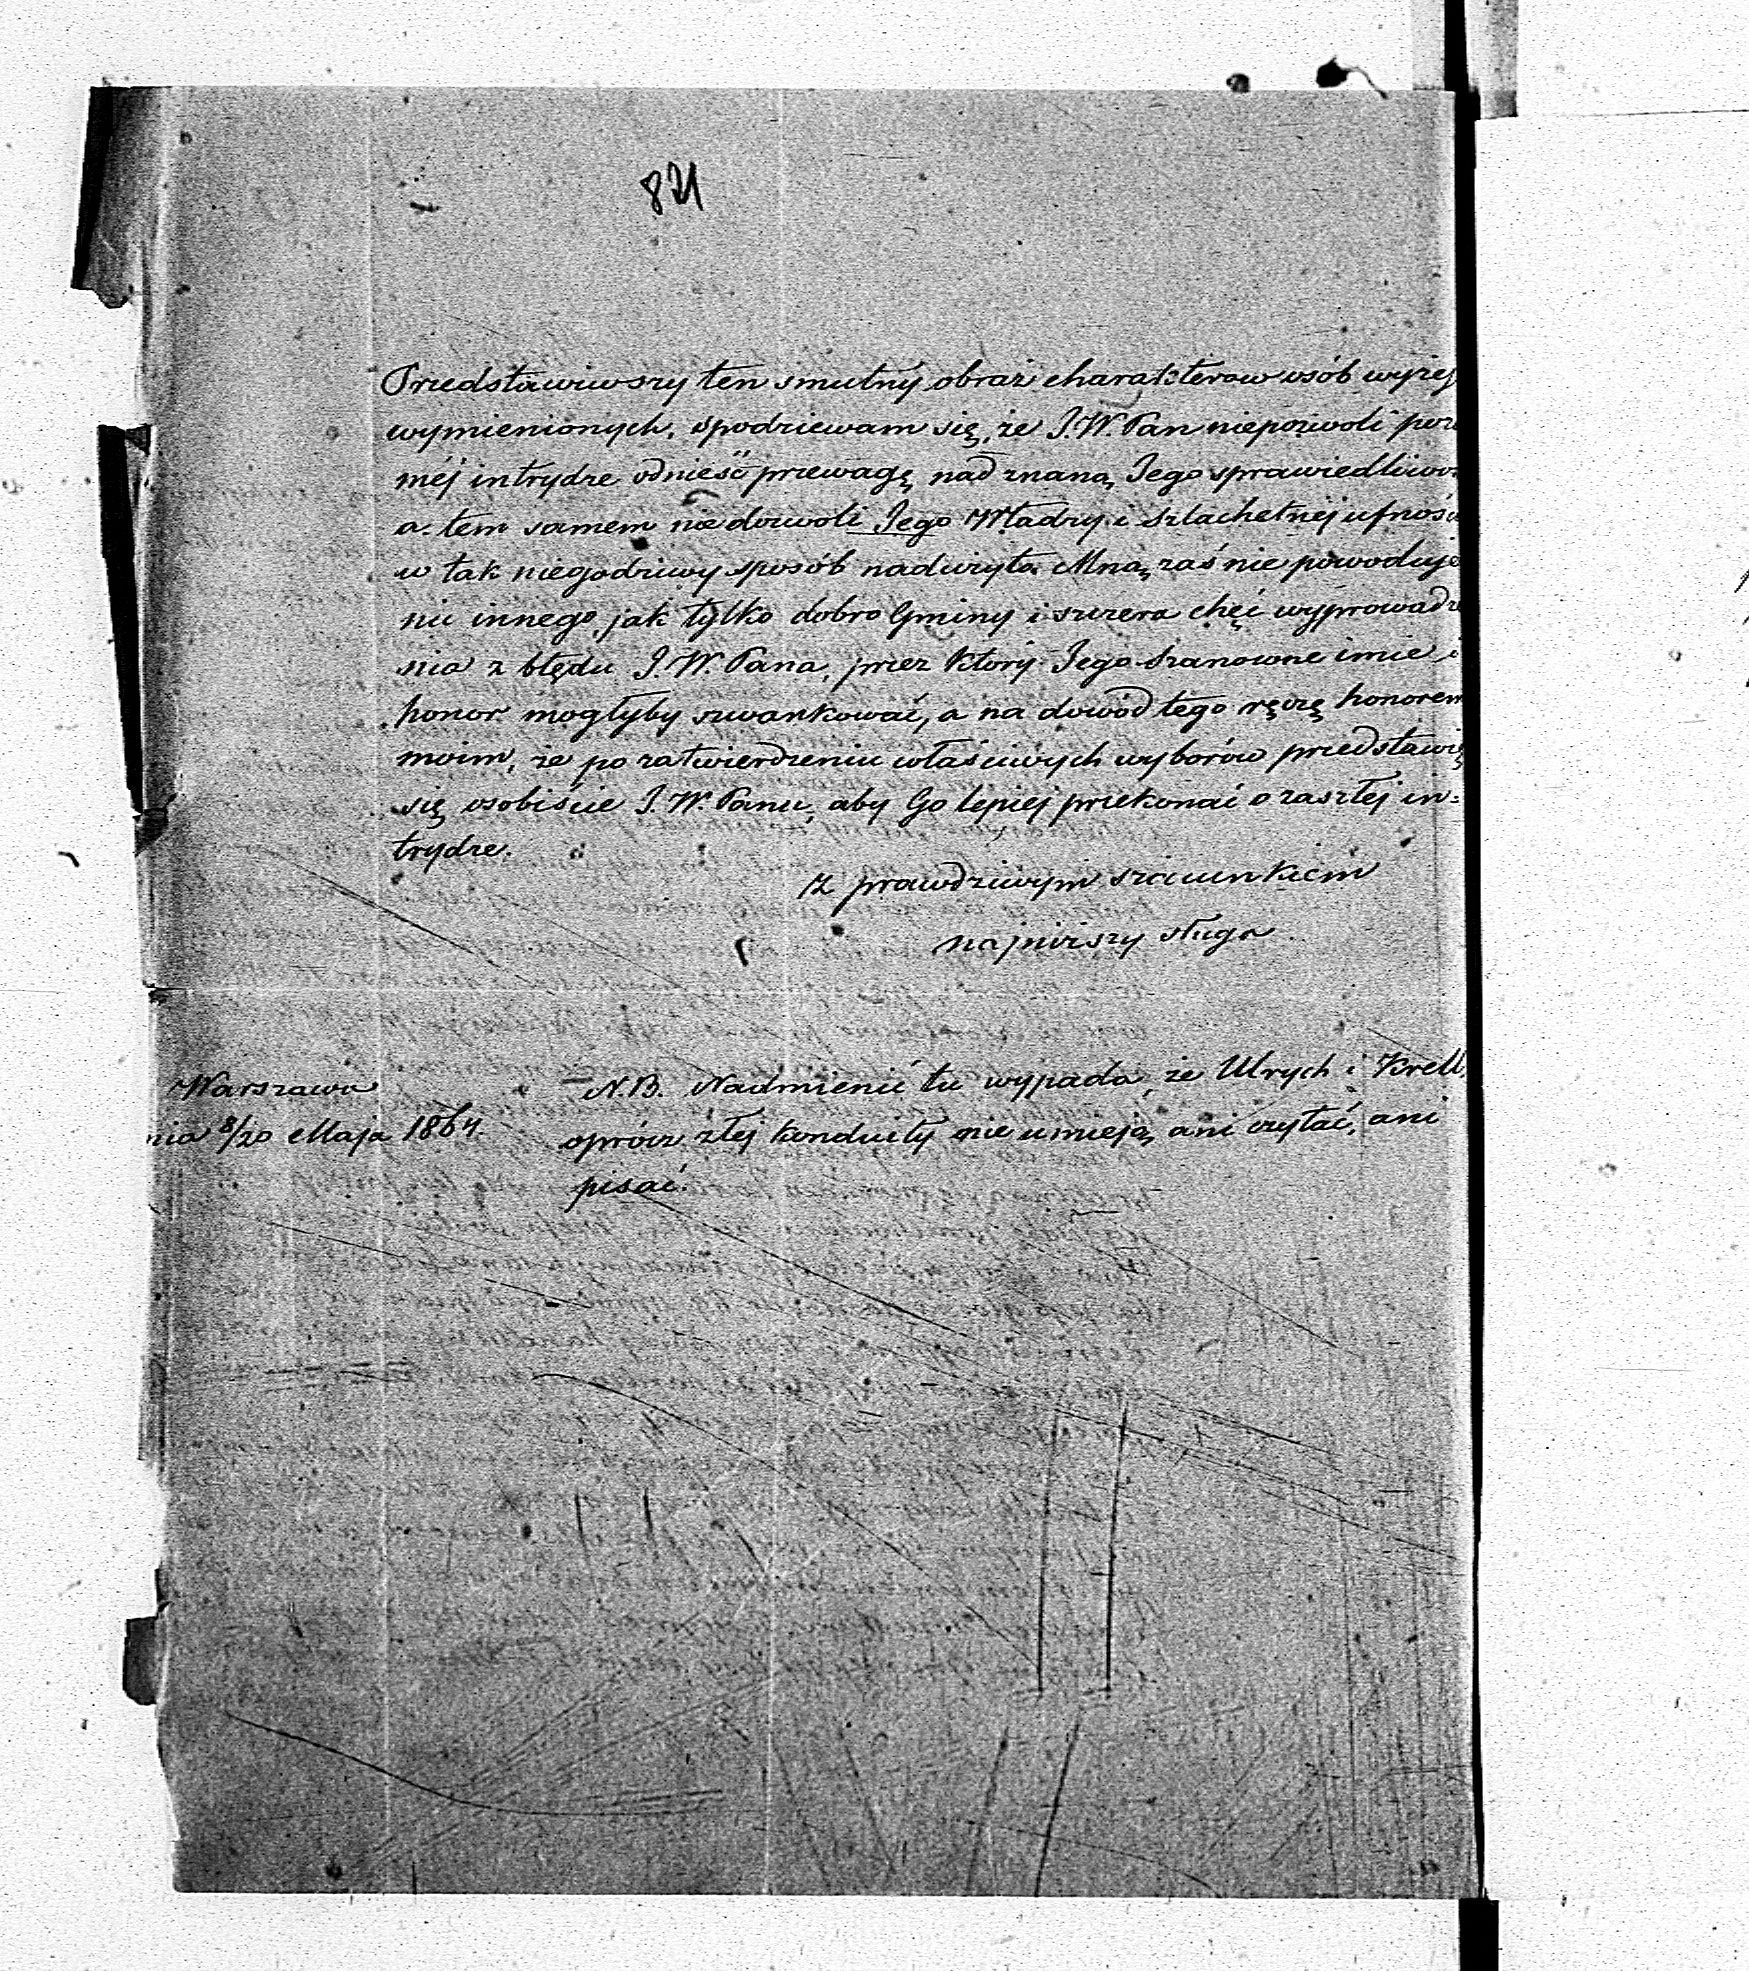 821
Przedstawiwszy ten smutny obraz charakterow osób wyżej
wymienionych, spodziewam się, że J.W. Pan niepozwoli poz
méj intrydze odnieść przewagę nad znaną Jego sprawiedliwo
a tem samem niedozwoli Jego Władzy i szlachetnéj ufnoś
w tak niegodziwy sposób nadużyta Mną zaś nie powoduje
nic innego, jak tylko dobro Gminy i szczera chęć wyprowadze
nia z błędu J.W. Pana, przez który Jego Szanowne imie i
honor mogłyby szwankować, a na dowód tego ręczę honorem
moim, że po zatwierdzeniu właściwych wyborów przedstawię
się osobiście J.W. Panu, aby Go lepiej przekonać o zaszłej in=
trydze.
Z prawdziwym szacunkiem
najniższy sługa
Warszawa
nia 8/20 Maja 1864.
N.B. Nadmienić tu wypada, że Ulrych i Krell,
oprócz złej konduity nie umieją ani czytać, ani
pisać.